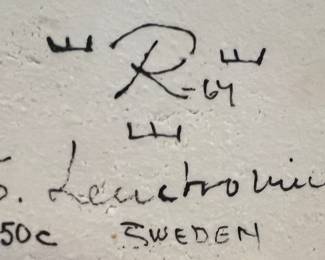 R-64
S. Leuchoviu
50c SWEDEN